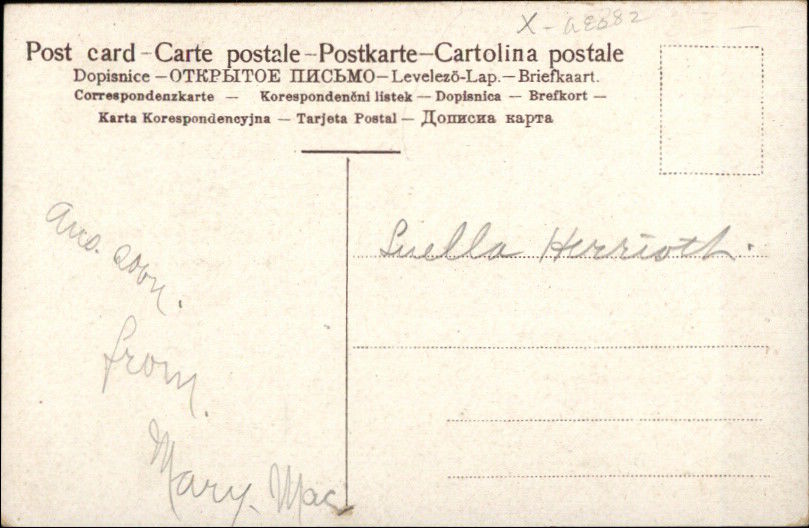 X-a2882
Post card – Carte postale – Postkarte – Cartolina postale
Dopisnice – ОТКРЫТОЕ ПИСЬМО – Levelező-Lap. – Briefkaart.
Correspondenzkarte – Korespondenční listek – Dopisnica – Brefkort –
Karta Korespondencyjna – Tarjeta Postal – Дописна карта
Luella Herrioth.
Ans. soon.
from.
Mary. Mac